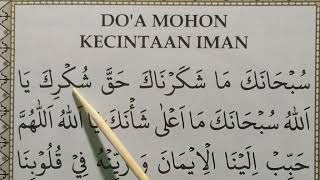 DO'A MOHON
KECINTAAN IMAN
سُبْحَانَكَ مَا شَكَرْنَاكَ حَقَّ شُكْرِكَ يَا
اَللهُ سُبْحَانَكَ مَا اَعْلَى شَأْنَكَ يَا اَللهُ اَللّٰهُمَّ
حَبِّبْ اِلَيْنَا الْاِيْمَانَ وَزَيِّنْهُ فِيْ قُلُوْبِنَا